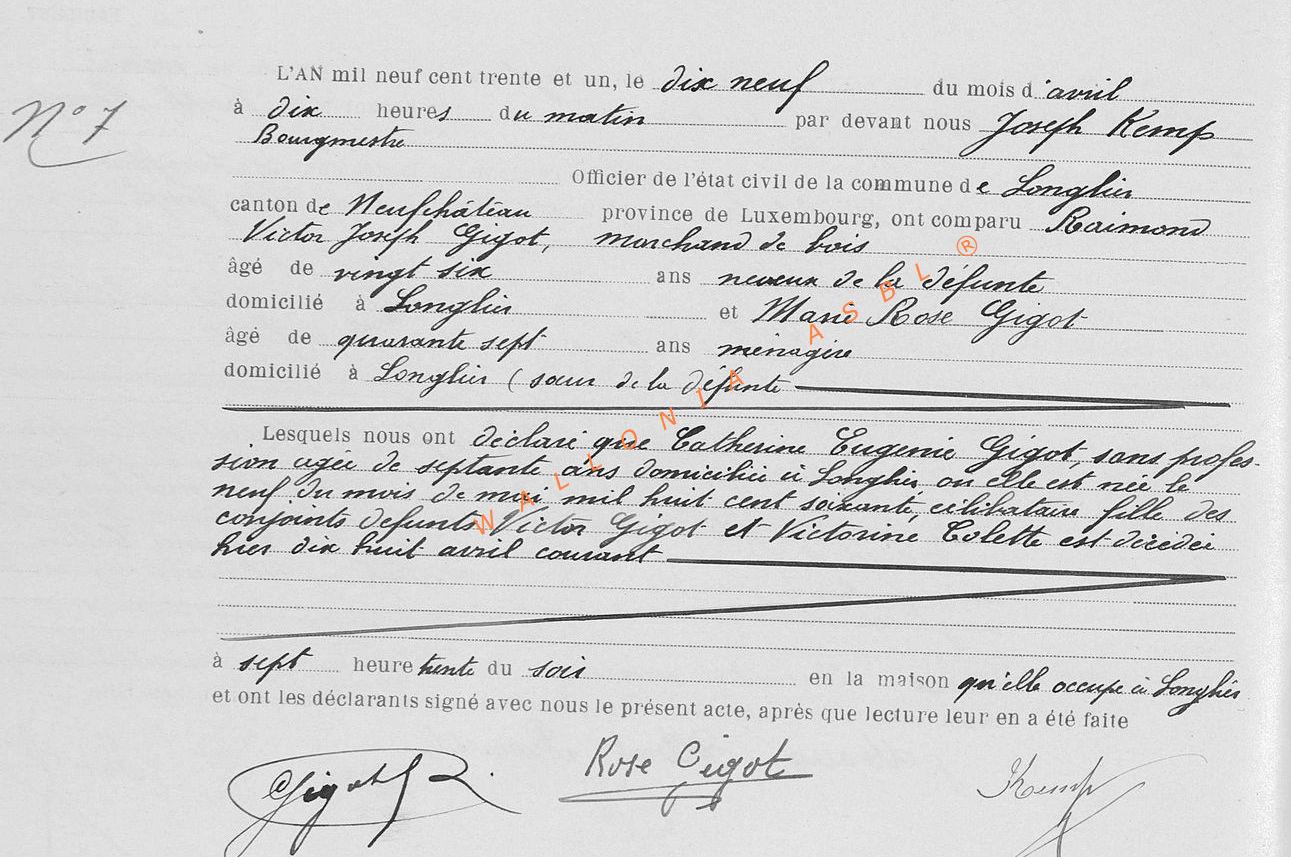 L'AN mil neuf cent trente et un, le dix neuf du mois d'avril
N° 7
à dix heures du matin par devant nous Joseph Kemp
Bourgmestre
Officier de l'état civil de la commune de Longlier
canton de Neufchâteau province de Luxembourg, ont comparu Raimond
Victor Joseph Gigot, marchand de bois
âgé de vingt six ans neveux de la défunte
domicilié à Longlier et Marie Rose Gigot
âgé de quarante sept ans ménagère
domicilié à Longlier (sœur de la défunte
Lesquels nous ont déclaré que Catherine Eugenie Gigot, sans profes-
sion agée de septante ans domiciliée à Longlier ou elle est née le
neuf du mois de mai mil huit cent soixante, célibataire fille des
conjoints defunts Victor Gigot et Victorine Colette est décédée
hier dix huit avril courant
à sept heure trente du soir en la maison qu'elle occupe à Longlier
et ont les déclarants signé avec nous le présent acte, après que lecture leur en a été faite
Gigot R. Rose Gigot Kemp
WALLONIA ASBL ®